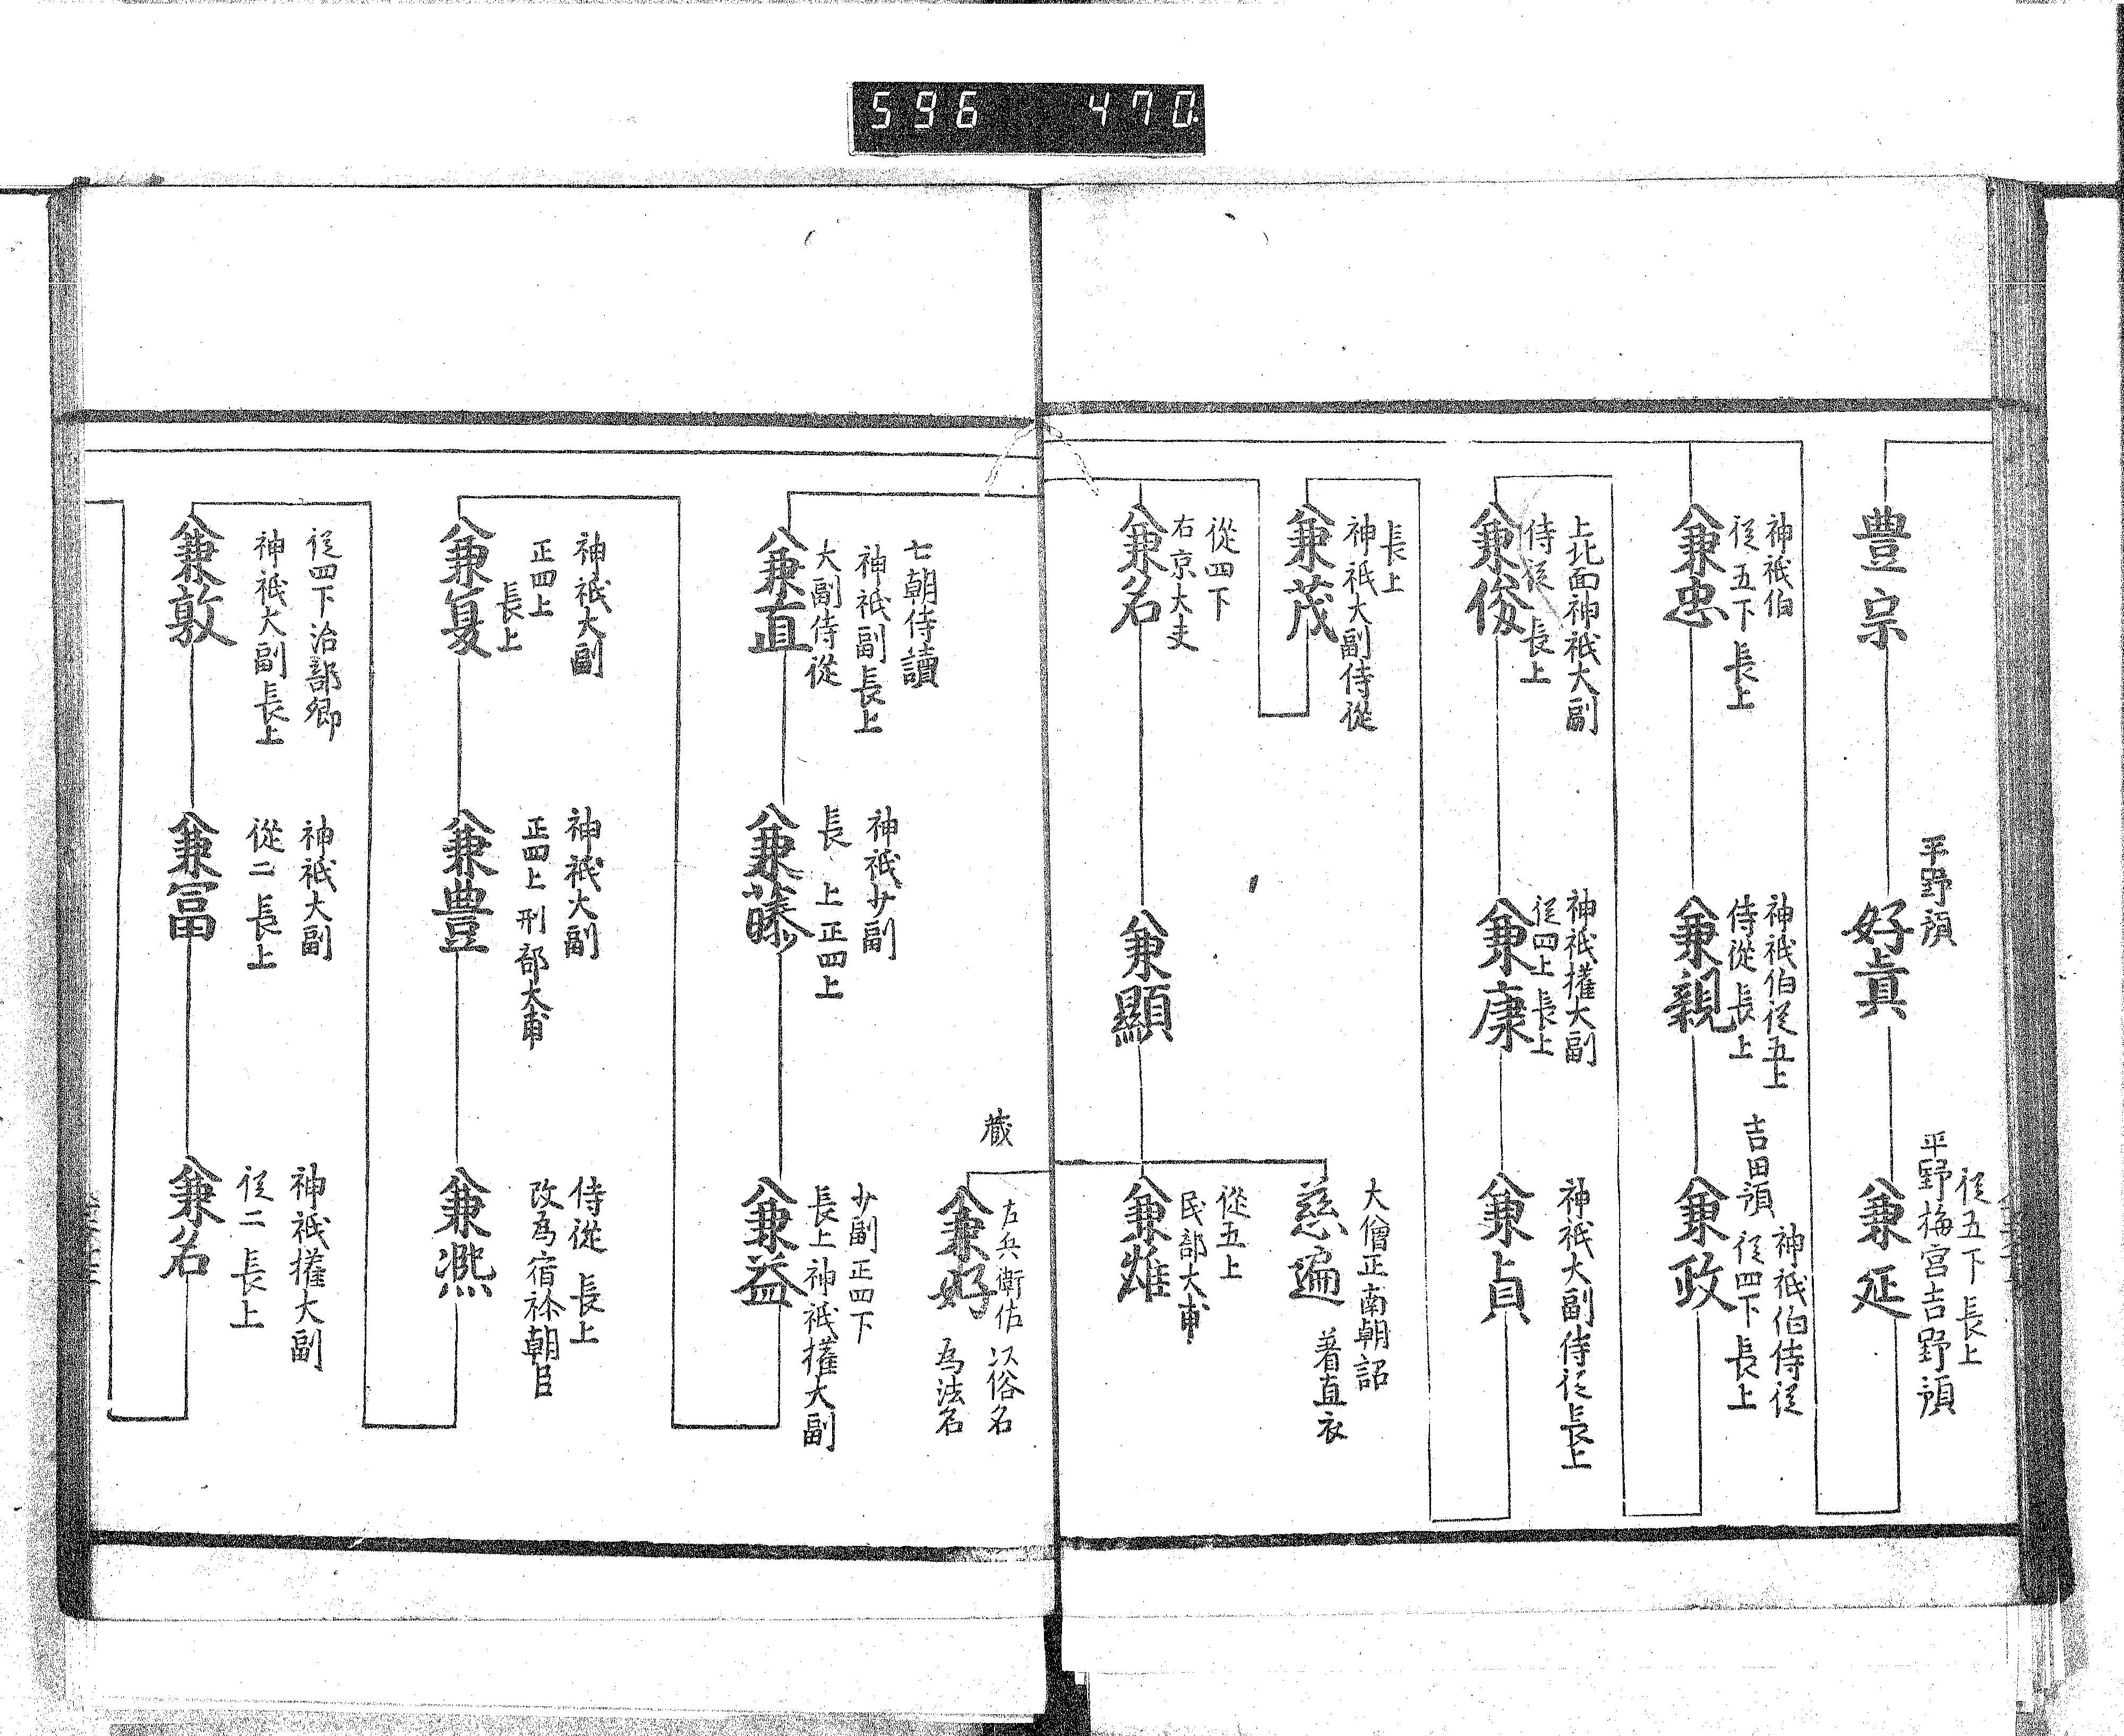 596 470
豊宗
平野預
好真
從五下 長上
平野梅宮吉野預
兼延
神祇伯
從五下 長上
兼忠
神祇伯從五上
侍從 長上
兼親
吉田預
神祇伯侍從
從四下 長上
兼政
上北面神祇大副
侍從 長上
兼俊
神祇權大副
從四上 長上
兼康
神祇大副侍從長上
兼貞
長上
神祇大副侍從
兼茂
從四下
右京大夫
兼名
兼顯
大僧正南朝詔
著直衣
慈遍
從五上
民部大甫
兼雄
藏
左兵衛佐 以俗名
為法名
兼好
七朝侍讀
神祇副長上
大副侍從
兼直
神祇少副
長上 正四上
兼藤
少副正四下
長上神祇權大副
兼益
神祇大副
正四上
長上
兼夏
神祇大副
正四上 刑部大甫
兼豊
侍從 長上
改為宿祢朝臣
兼凞
從四下治部卿
神祇大副長上
兼敦
神祇大副
從二 長上
兼冨
神祇權大副
從二 長上
兼名